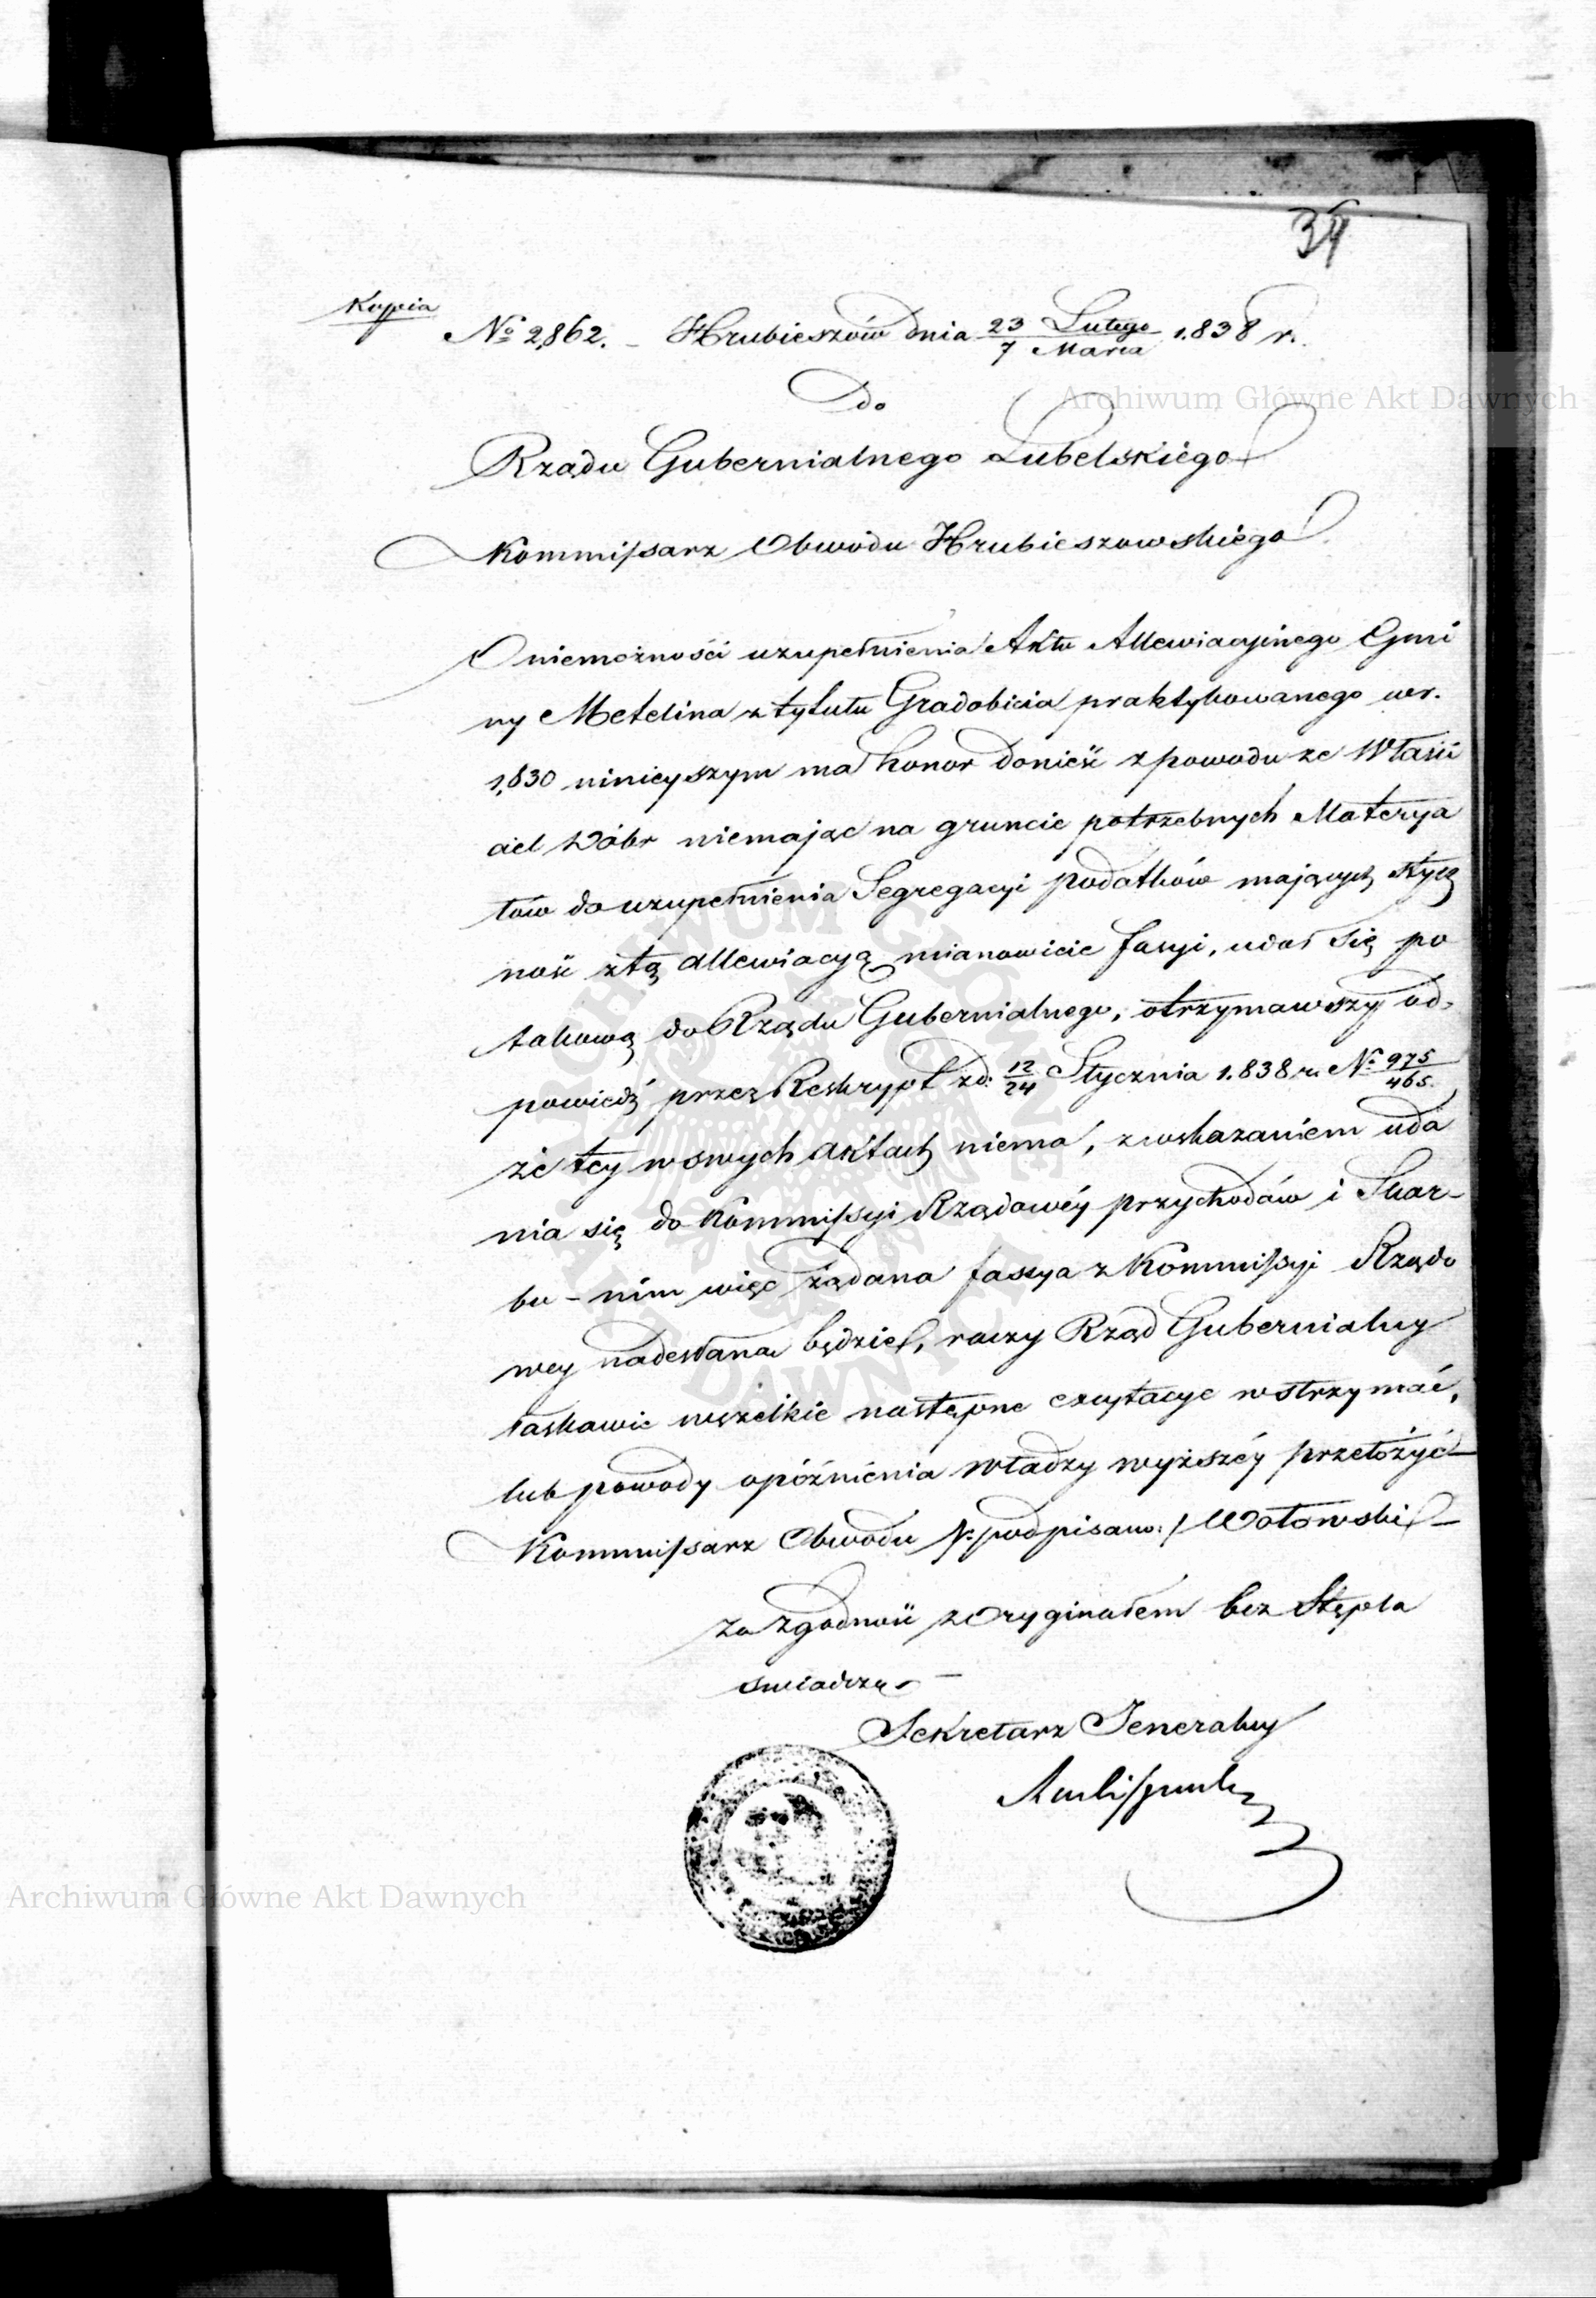 34
Kopia
№ 2862. – Hrubieszów dnia 23 Lutego / 7 Marca 1.838 r.
Do
Rządu Gubernialnego Lubelskiego
Kommissarz Obwodu Hrubieszowskiego
O niemożności uzupełnienia Aktu Allewiacyjnego Gmi
ny Metelina z tytułu Gradobicia praktykowanego w r.
1,830 ninieyszym ma honor donieść z powodu ze Właści
ciel Dóbr niemając na gruncie potrzebnych Materya
łów do uzupełnienia Segregacyi podatków mających stycz
ność z tą allewiacyą mianowicie fasyi, udał się po
takową do Rządu Gubernialnego, otrzymawszy od-
powiedź przez Reskrypt z d: 12/24 Stycznia 1.838 r. № 975/465
że tey w swych aktach niema, z wskazaniem uda
nia się do Kommissyi Rządowéy przychodów i Skar-
bu – nim więc żądana fassya z Kommissyi Rządo
wey nadesłana będzie, raczy Rząd Gubernialny
łaskawie wszelkie następne excytacye wstrzymać,
lub powody opóźnienia władzy wyższéy przełożyć –
Kommissarz Obwodu /:podpisano:/ Wołowski –
Za zgodność z Oryginałem bez Stępla
swiadczę –
Sekretarz Jeneralny
Archiwum Główne Akt Dawnych
ARCHIWUM GŁÓWNE AKT DAWNYCH
Archiwum Główne Akt Dawnych